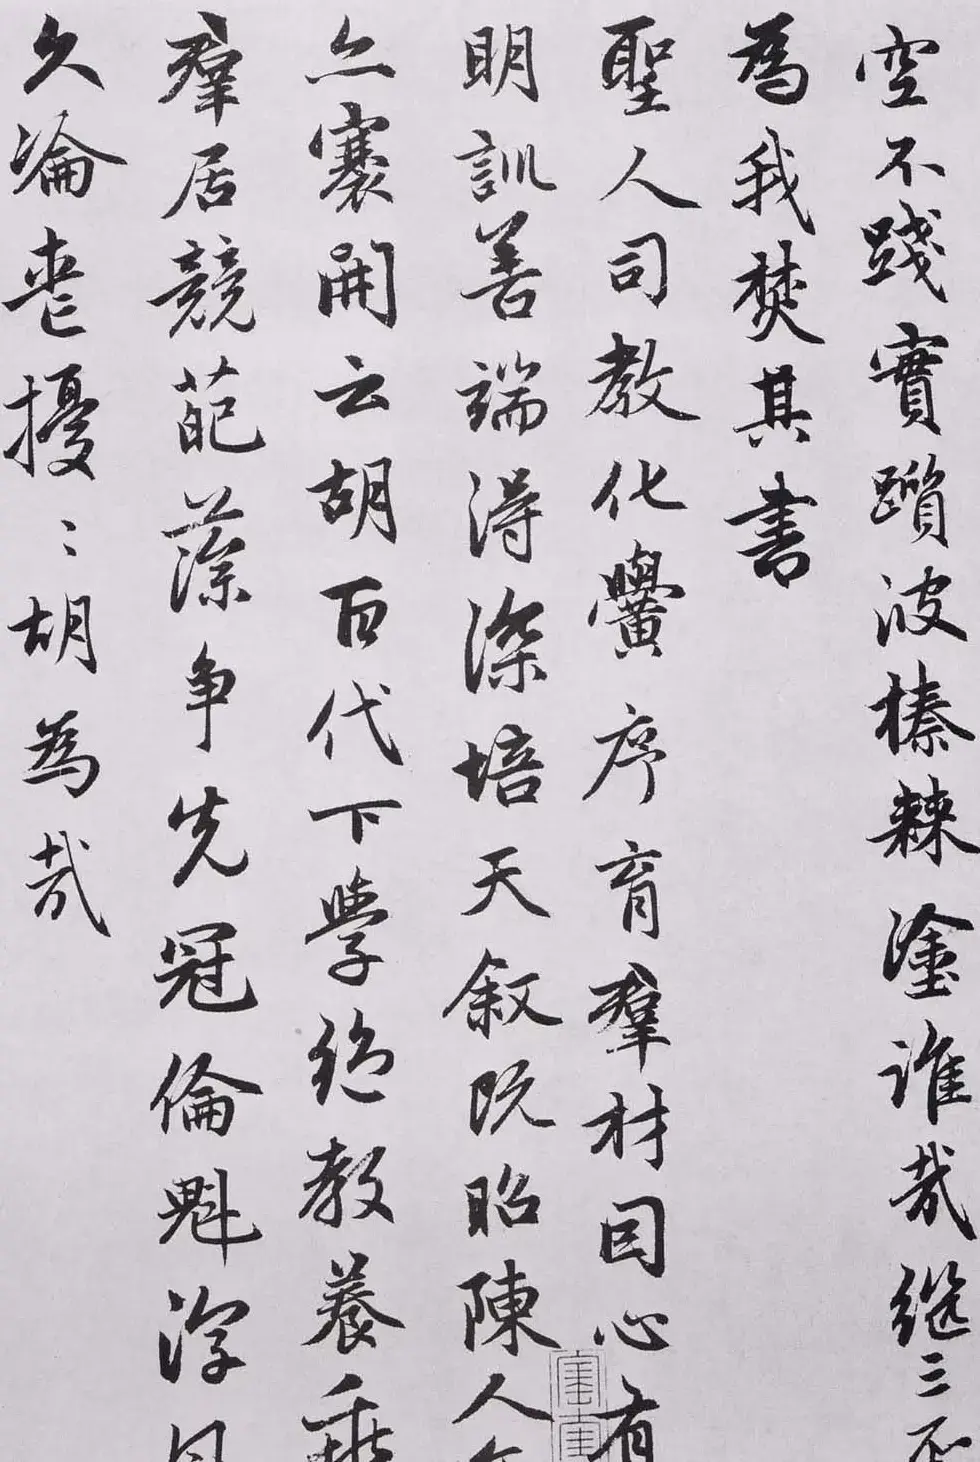 空不踐實躓彼榛棘塗誰哉繼三
為我焚其書
聖人司教化黌序育羣材因心有
明訓善端得深培天叙既昭陳人
亦褰開云胡百代下學絶教養乖
羣居競葩藻争先冠倫魁淳風
久淪喪擾〻胡為哉